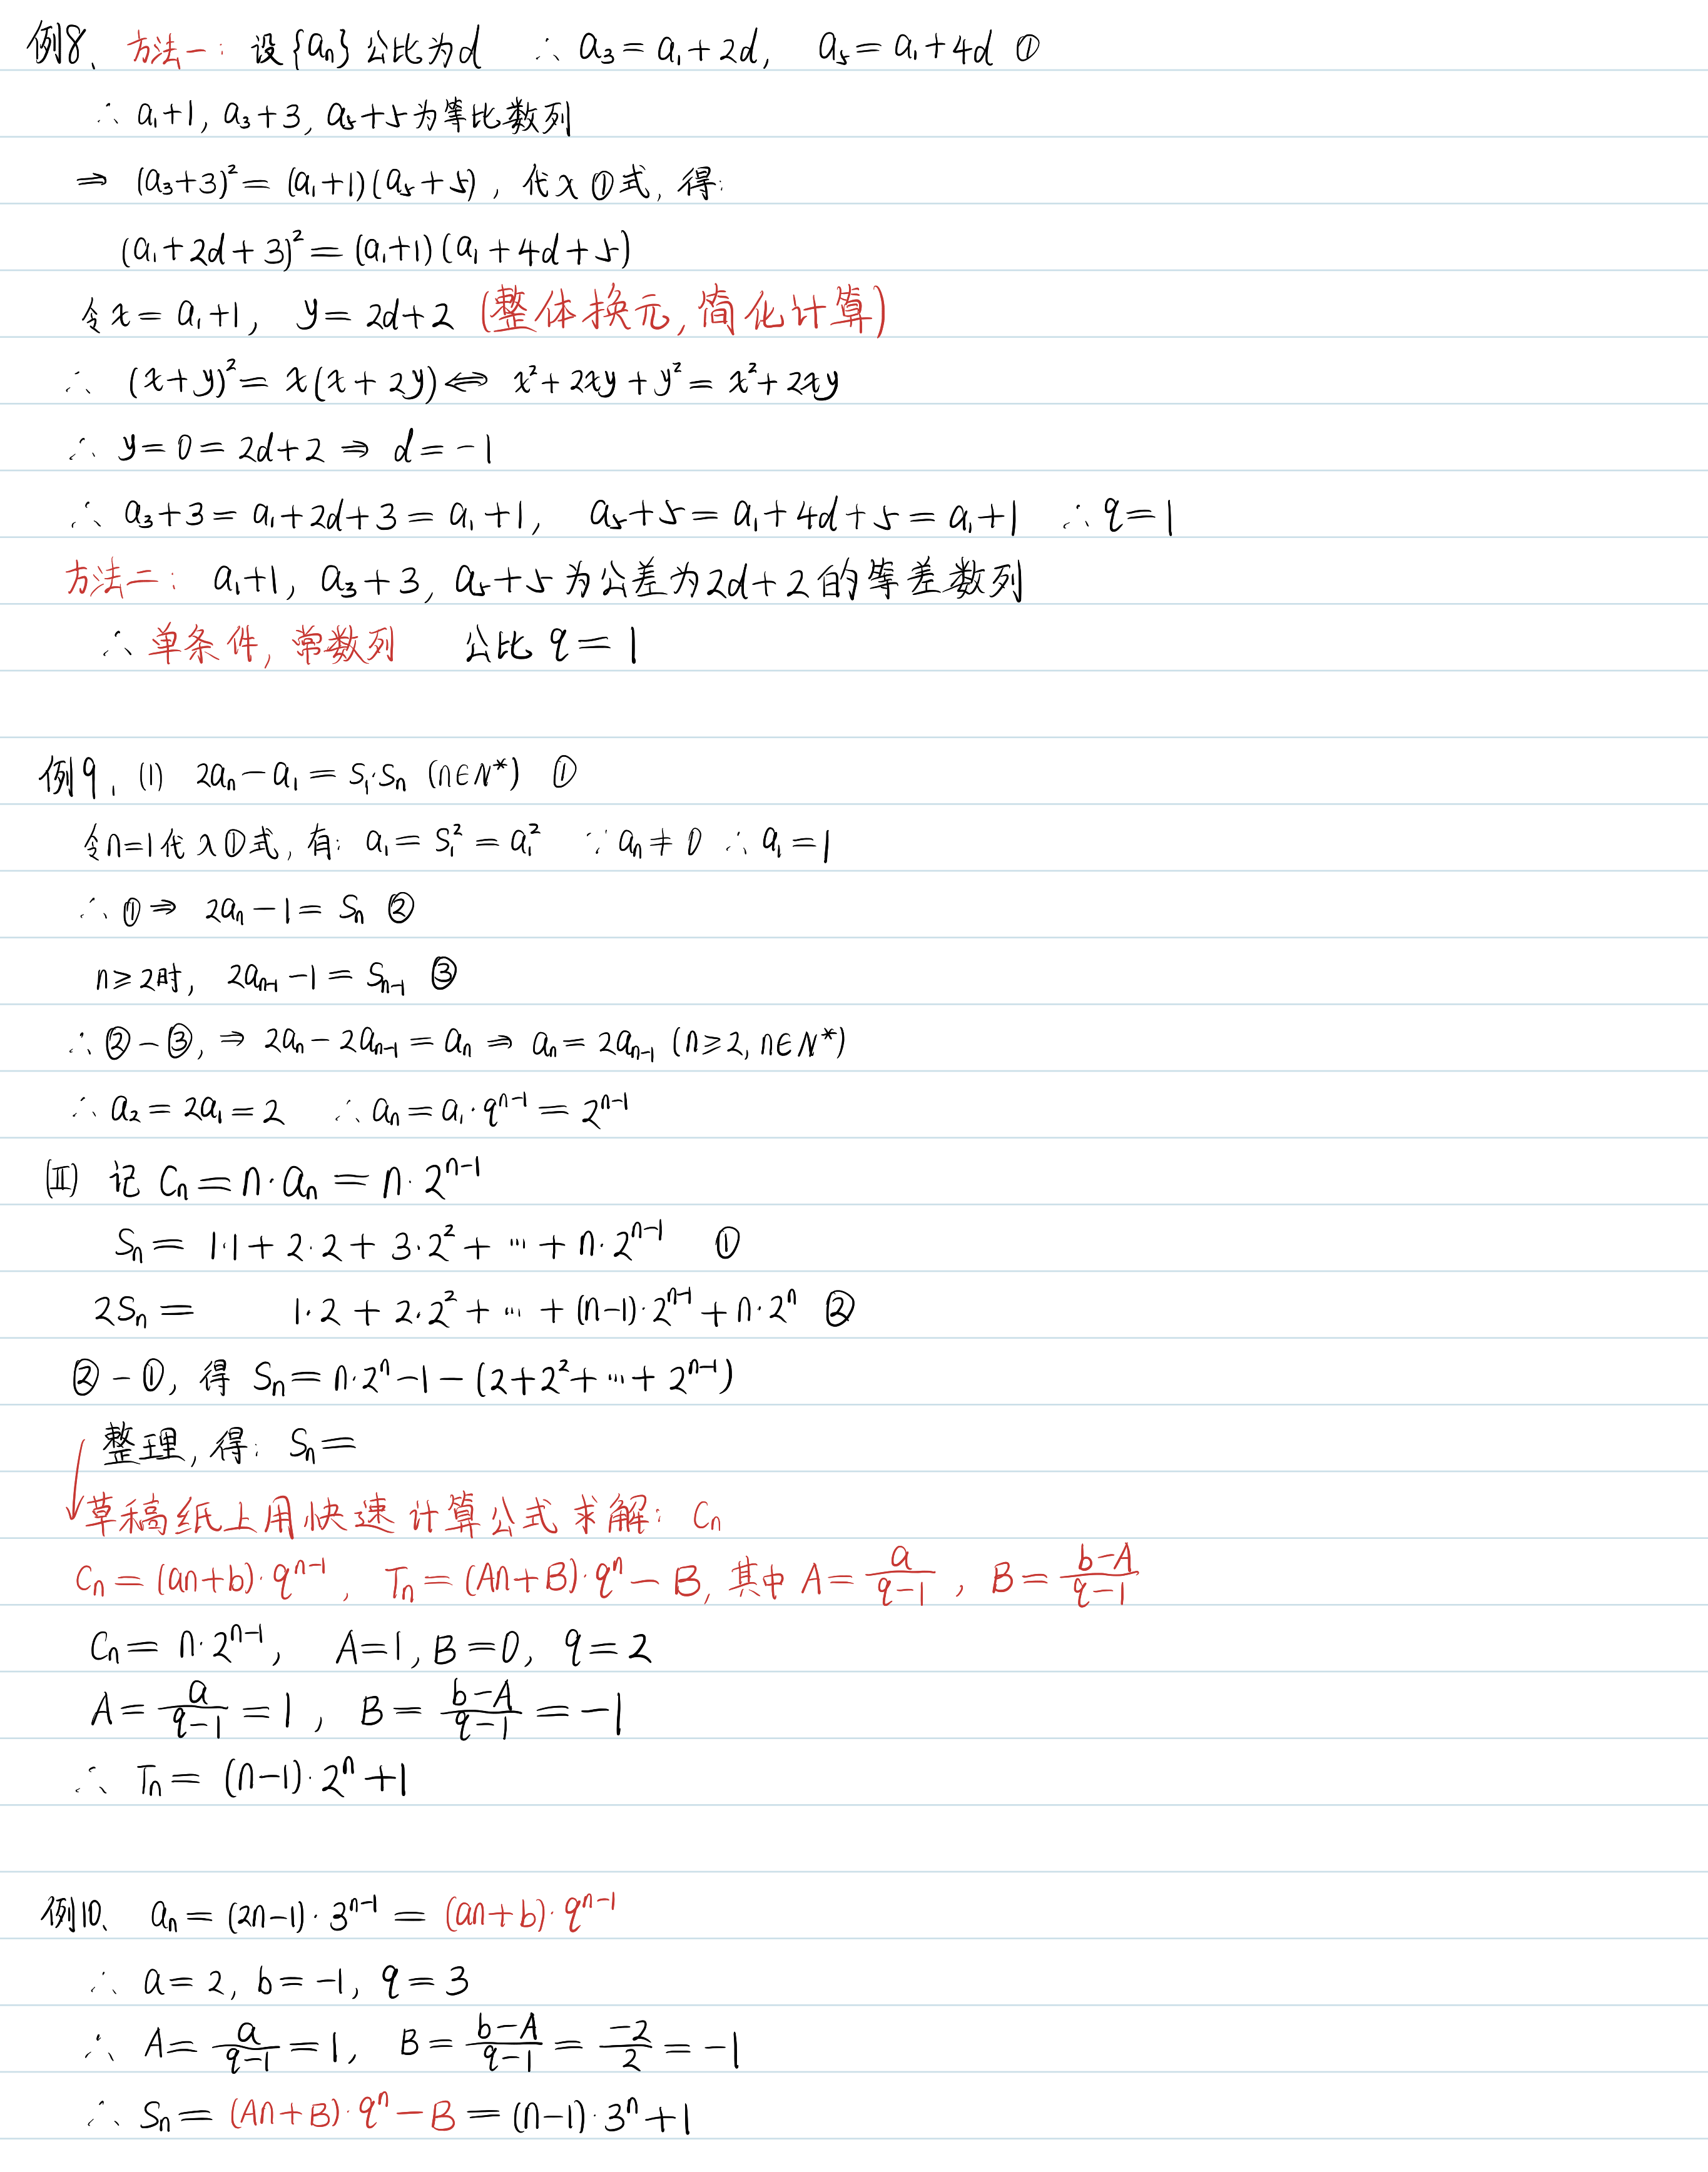 例8、方法一：设{aₙ}公比为d ∴ a₃=a₁+2d， a₅=a₁+4d ①
∴ a₁+1, a₃+3, a₅+5为等比数列
⇒ (a₃+3)²=(a₁+1)(a₅+5)，代入①式，得：
(a₁+2d+3)²=(a₁+1)(a₁+4d+5)
令x=a₁+1， y=2d+2 (整体换元，简化计算)
∴ (x+y)²=x(x+2y)⇔ x²+2xy+y²=x²+2xy
∴ y=0=2d+2 ⇒ d=-1
∴ a₃+3=a₁+2d+3=a₁+1， a₅+5=a₁+4d+5=a₁+1 ∴ q=1
方法二：a₁+1, a₃+3, a₅+5为公差为2d+2的等差数列
∴ 单条件，常数列 公比q=1
例9、(1) 2aₙ-a₁=S₁·Sₙ (n∈N*) ①
令n=1代入①式，有：a₁=S₁²=a₁² ∵aₙ≠0 ∴a₁=1
∴①⇒ 2aₙ-1=Sₙ ②
n≥2时， 2aₙ₋₁-1=Sₙ₋₁ ③
∴②-③，⇒ 2aₙ-2aₙ₋₁=aₙ ⇒ aₙ=2aₙ₋₁ (n≥2, n∈N*)
∴ a₂=2a₁=2 ∴aₙ=a₁·qⁿ⁻¹=2ⁿ⁻¹
(Ⅱ) 记 Cₙ=n·aₙ=n·2ⁿ⁻¹
Sₙ= 1·1+2·2+3·2²+…+n·2ⁿ⁻¹ ①
2Sₙ= 1·2+2·2²+…+(n-1)·2ⁿ⁻¹+n·2ⁿ ②
②-①，得 Sₙ=n·2ⁿ-1-(2+2²+…+2ⁿ⁻¹)
整理，得：Sₙ=
草稿纸上用快速计算公式求解：Cₙ
Cₙ=(an+b)·qⁿ⁻¹， Tₙ=(An+B)·qⁿ-B，其中A=a/(q-1)， B=(b-A)/(q-1)
Cₙ=n·2ⁿ⁻¹， A=1, B=0, q=2
A=a/(q-1)=1， B=(b-A)/(q-1)=-1
∴ Tₙ=(n-1)·2ⁿ+1
例10、 aₙ=(2n-1)·3ⁿ⁻¹=(an+b)·qⁿ⁻¹
∴ a=2, b=-1, q=3
∴ A=a/(q-1)=1， B=(b-A)/(q-1)=-2/2=-1
∴ Sₙ=(An+B)·qⁿ-B=(n-1)·3ⁿ+1